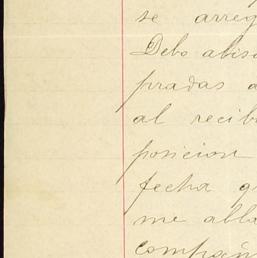 se arreg
Debo abisa
pradas a
al recib
posicion
fecha qu
me abla
compañ